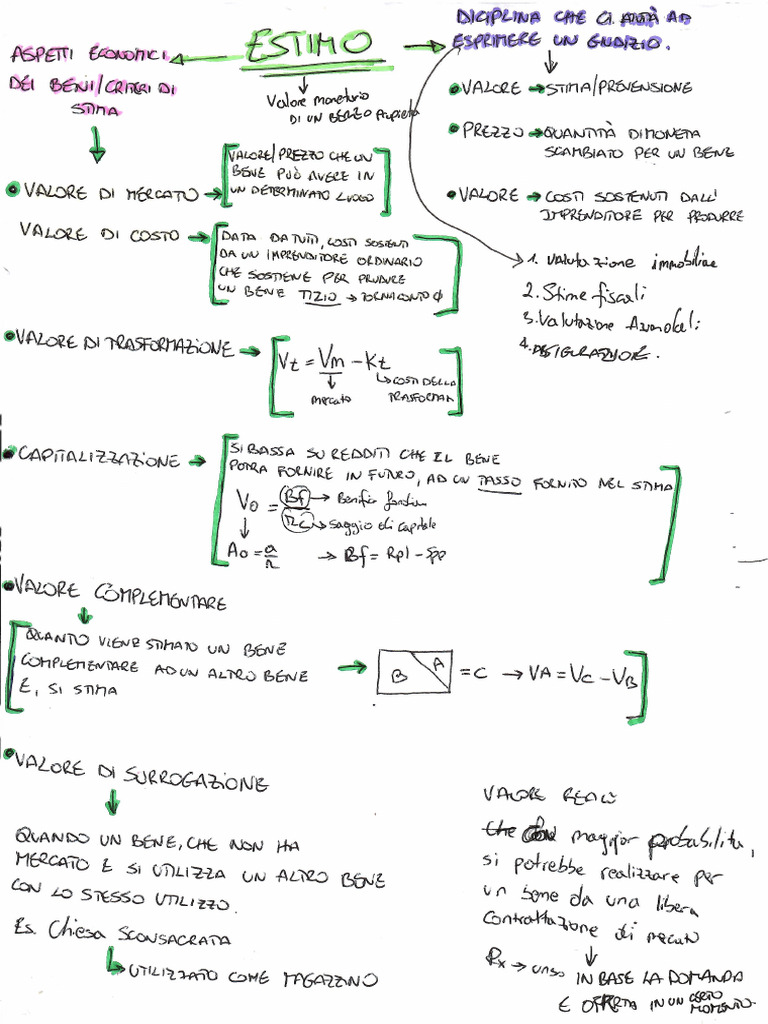 ESTIMO
DICIPLINA CHE CI AIUTA AD
ESPRIMERE UN GIUDIZIO.
ASPETTI ECONOMICI
DEI BENI/CRITERI DI
STIMA
Valore monetario
DI UN BENE O proprietà
• VALORE → STIMA/PREVENSIONE
• PREZZO → QUANTITÀ DI MONETA
SCAMBIATO PER UN BENE
• VALORE → COSTI SOSTENUTI DALL'
IMPRENDITORE PER PRODURRE
1. Valutazione immobiliare
2. Stime fiscali
3. Valutazione Aziendali
4.
• VALORE DI MERCATO → VALORE/PREZZO CHE UN
BENE PUÒ AVERE IN
UN DETERMINATO LUOGO
VALORE DI COSTO → DATA DA TUTTI, COSTI SOSTENUTI
DA UN IMPRENDITORE ORDINARIO
CHE SOSTIENE PER PRODURE
UN BENE TIZIO → TORNACONTO Ø
• VALORE DI TRASFORMAZIONE → Vt = Vm - Kt
mercato
COSTI DELLA
TRASFORMAZ
• CAPITALIZZAZIONE → SI BASSA SU REDDITI CHE IL BENE
POTRA FORNIRE IN FUTURO, AD UN TASSO FORNITO NEL STIMA
Vo = Bf → Benificio fondiario
rc → Saggio di capitale
Ao = a/r → Bf = Rpl - Spp
• VALORE COMPLEMENTARE
QUANTO VIENE STIMATO UN BENE
COMPLEMENTARE AD UN ALTRO BENE
E, SI STIMA
B A = C → VA = VC - VB
• VALORE DI SURROGAZIONE
QUANDO UN BENE, CHE NON HA
MERCATO E SI UTILIZZA UN ALTRO BENE
CON LO STESSO UTILIZZO.
Es. Chiesa SCONSACRATA
UTILIZZATO COME MAGAZZINO
VALORE REALE
che con maggior probabilità,
si potrebbe realizzare per
un bene da una libera
contrattazione di mercato
Px → unso IN BASE LA DOMANDA
E OFFERTA IN UN CERTO
MOMENTO.